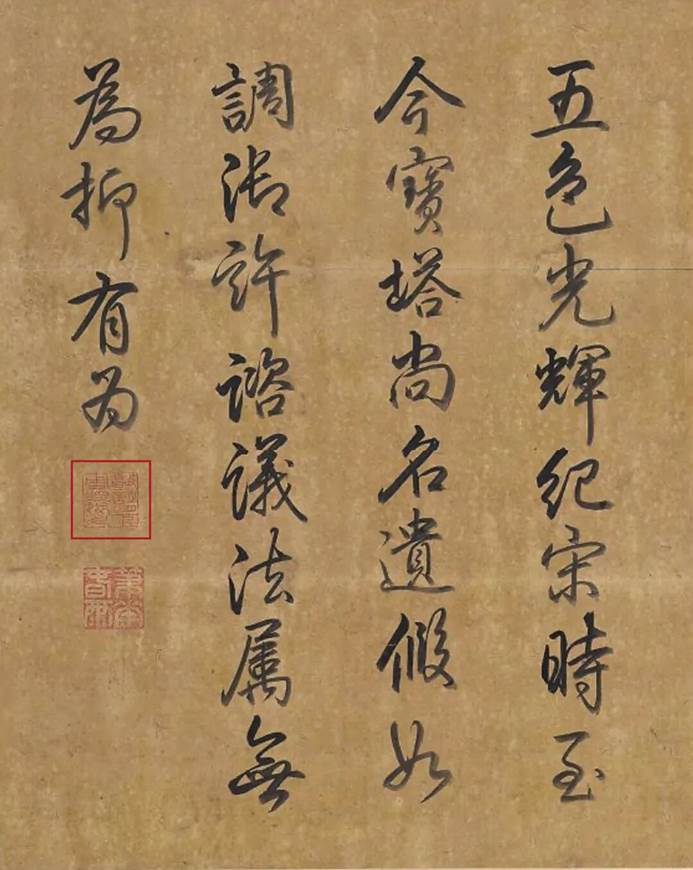 五色光輝紀宋時至
今寶塔尚名遺假如
調御許諮議法屬無
為抑有為